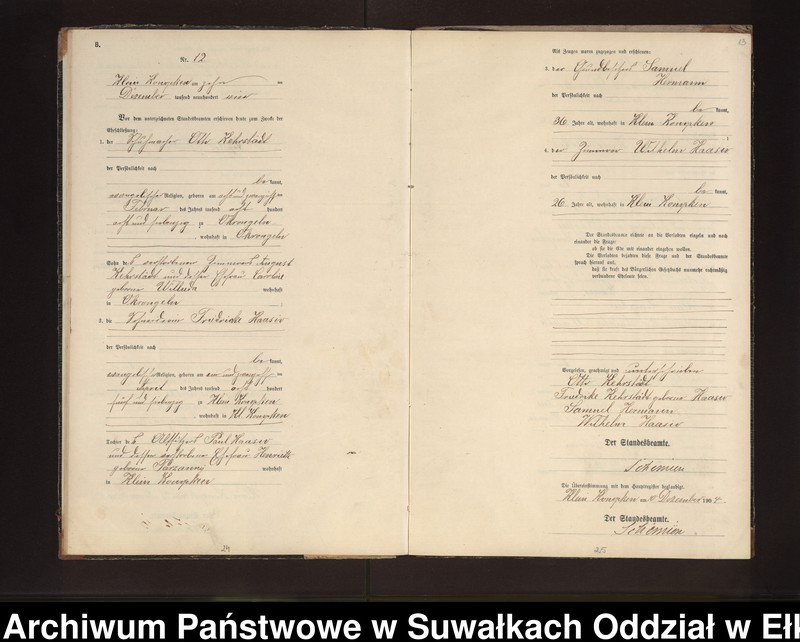 8.
Nr. 12
Klein Konopken am zehn ten
Dezember tausend neunhundert vier
Vor dem unterzeichneten Standesbeamten erschienen heute zum Zwecke der
Eheschließung:
1. der Schuhmacher Otto Kehrstädt
der Persönlichkeit nach
be kannt,
evangelischer Religion, geboren am acht und zwanzigsten
Februar des Jahres tausend acht hundert
acht und siebenzig zu Okrongeln
, wohnhaft in Okrongeln
Sohn des verstorbenen Zimmermanns August
Kehrstädt und dessen Ehefrau Caroline
geborene wohnhaft
in Okrongeln
2. die Friedricke Haasler
der Persönlichkeit nach
be kannt,
evangelischer Religion, geboren am ein und zwanzigsten
des Jahres tausend acht hundert
fünf und siebenzig zu Klein Konopken
, wohnhaft in Kl Konopken
Tochter des Altsitzers Paul Haasler
und dessen verstorbener Ehefrau Henriette
geborene wohnhaft
in Klein Konopken
24
13
Als Zeugen waren zugezogen und erschienen:
3. der Grundbesitzer Samuel
Hermann
der Persönlichkeit nach
be kannt,
36 Jahre alt, wohnhaft in Klein Konopken
4. der Zimmerer Wilhelm Haasler
der Persönlichkeit nach
be kannt,
26 Jahre alt, wohnhaft in Klein Konopken
Der Standesbeamte richtete an die Verlobten einzeln und nach
einander die Frage:
ob sie die Ehe mit einander eingehen wollen.
Die Verlobten bejahten diese Frage und der Standesbeamte
sprach hierauf aus,
daß sie kraft des Bürgerlichen Gesetzbuchs nunmehr rechtmäßig
verbundene Eheleute seien.
Vorgelesen, genehmigt und unterschrieben
Otto Kehrstädt
Friedricke Kehrstädt geborene Haasler
Samuel Hermann
Wilhelm Haasler
Der Standesbeamte.
Schimien
Die Übereinstimmung mit dem Hauptregister beglaubigt.
Klein Konopken am 10. Dezember 1904.
Der Standesbeamte.
Schimien.
25
Archiwum Państwowe w Suwałkach Oddział w Ełk